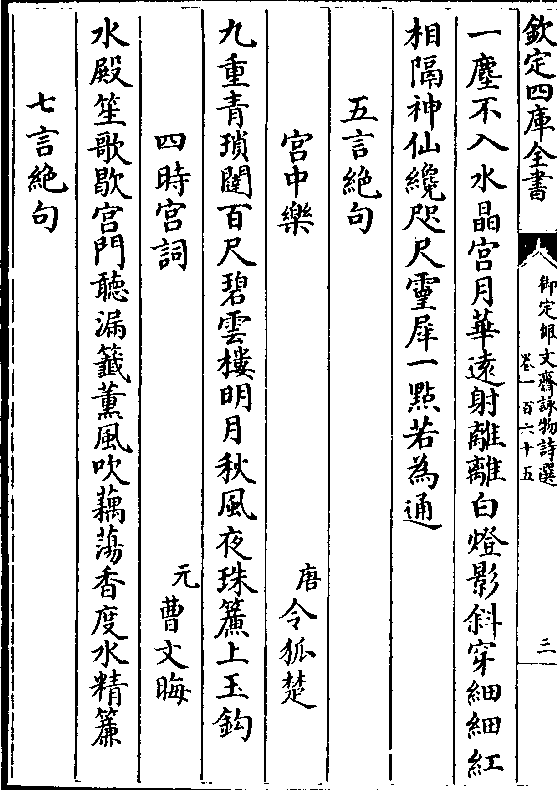 欽定四庫全書
御定佩文齋詠物詩選
卷一百六十五
三
一塵不入水晶宫月華逺射離離白燈影斜穿細細紅
相隔神仙纔咫尺靈犀一點若為通
五言絶句
宫中樂
唐令狐楚
九重青瑣闥百尺碧雲樓明月秋風夜珠簾上玉鈎
四時宫詞
元曹文晦
水殿笙歌歇宫門聽漏籤薰風吹藕蕩香度水精簾
七言絶句